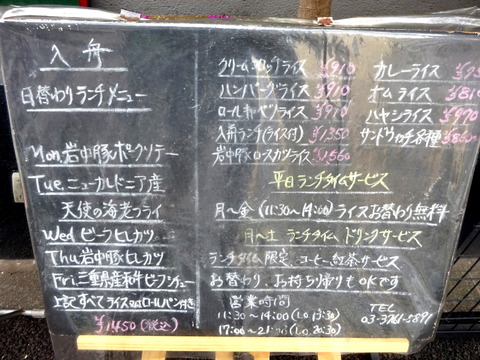 入舟
日替わりランチメニュー
Mon. 岩中豚ポークソテー
Tue. ニューカルドニア産
天使の海老フライ
Wed ビーフヒレカツ
Thu 岩中豚ヒレカツ
Fri. 三重県産和牛ビーフシチュー
上記すべてライスorロールパン付き
¥1450(税込)
クリームコロッケライス ¥910
ハンバーグライス ¥910
ロールキャベツライス ¥910
入舟ランチ(ライス付) ¥1350
岩中豚ロースカツライス ¥1560
カレーライス
オムライス ¥810
ハヤシライス ¥970
サンドウィッチ各種 ¥860
平日ランチタイムサービス
月〜金(11:30〜14:00)ライスお替わり無料
月〜土 ランチタイムドリンクサービス
ランチタイム限定 コーヒー紅茶サービス
お替わり、お持ち帰りもOKです
営業時間
11:30〜14:00(L.O.13:30)
17:00〜21:00(L.O.20:30)
TEL
03-3761-5891